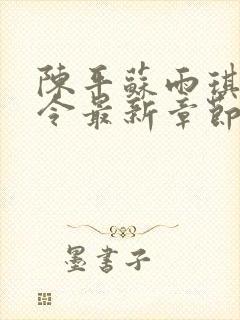 陳平蘇雨琪
令最新章節
墨書子